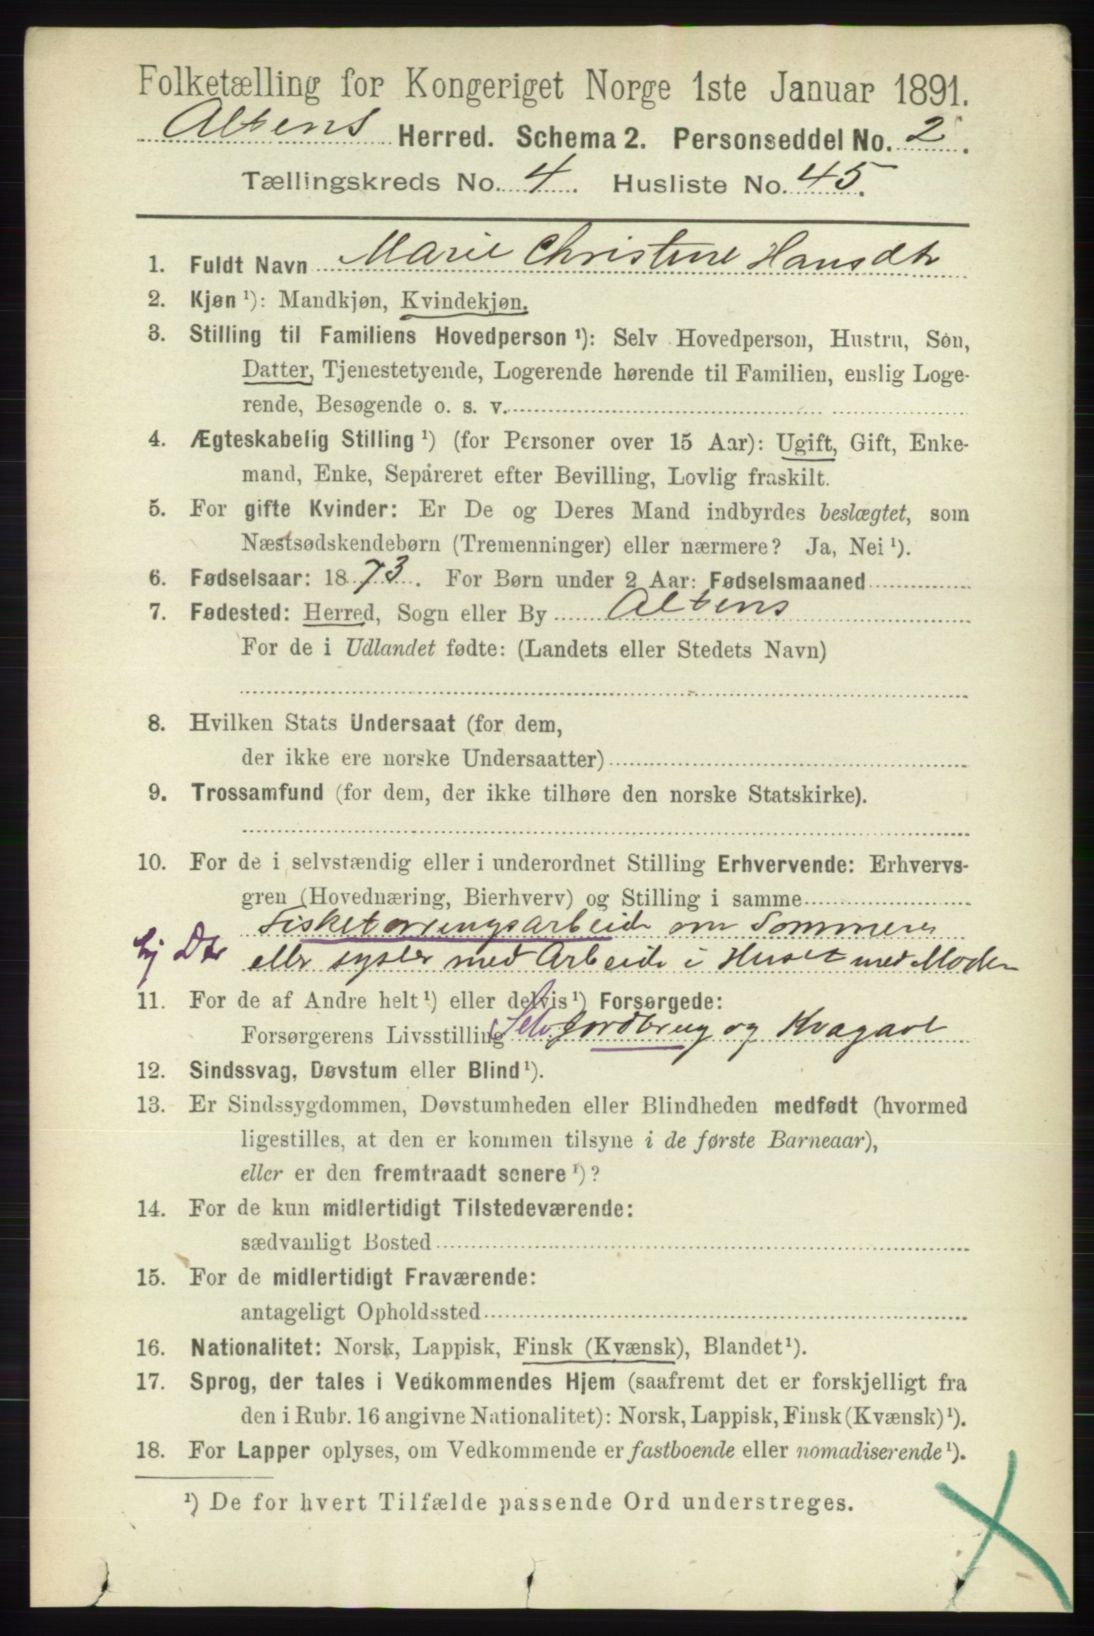 Folketælling for Kongeriget Norge 1ste Januar 1891.
Altens Herred. Schema 2. Personseddel No. 2.
Tællingskreds No. 4. Husliste No. 45.
1. Fuldt Navn Marie Christine Hansdtr
2. Kjøn ¹): Mandkjøn, Kvindekjøn.
3. Stilling til Familiens Hovedperson ¹): Selv Hovedperson, Hustru, Søn,
Datter, Tjenestetyende, Logerende hørende til Familien, enslig Loge-
rende, Besøgende o. s. v.
4. Ægteskabelig Stilling ¹) (for Personer over 15 Aar): Ugift, Gift, Enke-
mand, Enke, Separeret efter Bevilling, Lovlig fraskilt.
5. For gifte Kvinder: Er De og Deres Mand indbyrdes beslægtet, som
Næstsødskendebørn (Tremenninger) eller nærmere? Ja, Nei ¹).
6. Fødselsaar: 1873. For Børn under 2 Aar: Fødselsmaaned
7. Fødested: Herred, Sogn eller By Altens
For de i Udlandet fødte: (Landets eller Stedets Navn)
8. Hvilken Stats Undersaat (for dem,
der ikke ere norske Undersaatter)
9. Trossamfund (for dem, der ikke tilhøre den norske Statskirke).
10. For de i selvstændig eller i underordnet Stilling Erhvervende: Erhvervs-
gren (Hovednæring, Bierhverv) og Stilling i samme
Fisketørringsarbeide om Sommeren
hj Dtr eller sysler med Arbeide i Huset med Moder
11. For de af Andre helt ¹) eller delvis ¹) Forsørgede:
Forsørgerens Livsstilling Selv. Jordbrug og Kvagavl
12. Sindssvag, Døvstum eller Blind ¹).
13. Er Sindssygdommen, Døvstumheden eller Blindheden medfødt (hvormed
ligestilles, at den er kommen tilsyne i de første Barneaar),
eller er den fremtraadt senere ¹)?
14. For de kun midlertidigt Tilstedeværende:
sædvanligt Bosted
15. For de midlertidigt Fraværende:
antageligt Opholdssted
16. Nationalitet: Norsk, Lappisk, Finsk (Kvænsk), Blandet ¹).
17. Sprog, der tales i Vedkommendes Hjem (saafremt det er forskjelligt fra
den i Rubr. 16 angivne Nationalitet): Norsk, Lappisk, Finsk (Kvænsk) ¹).
18. For Lapper oplyses, om Vedkommende er fastboende eller nomadiserende ¹).
¹) De for hvert Tilfælde passende Ord understreges.